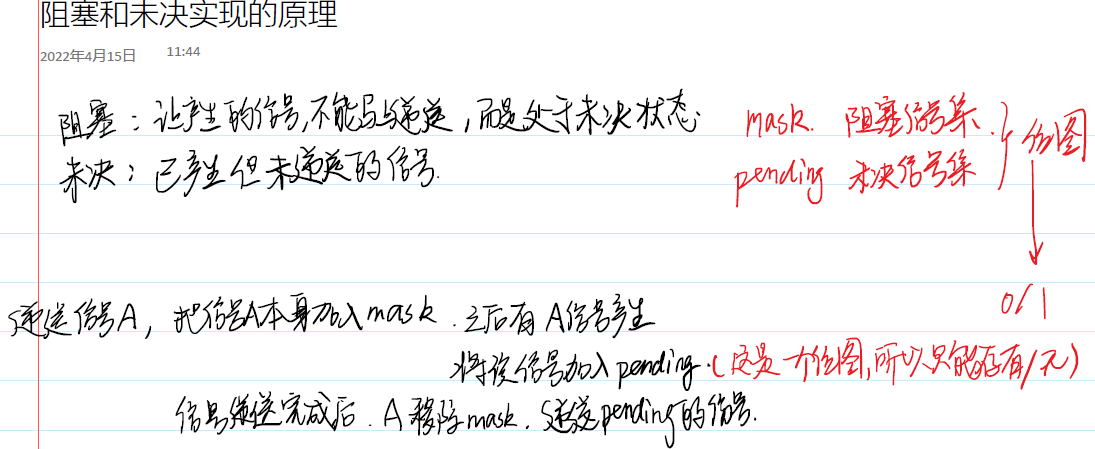 阻塞和未决实现的原理
2022年4月15日 11:44
阻塞：让产生的信号,不能马上递送，而是处于未决状态. mask. 阻塞信号集. } 位图
未决：已产生但未递送的信号. pending 未决信号集
0/1
递送信号A，把信号A本身加入mask. 之后有A信号产生
将该信号加入pending.(这是一个位图,所以只能存有/无)
信号递送完成后. A移除mask. 递送pending的信号.